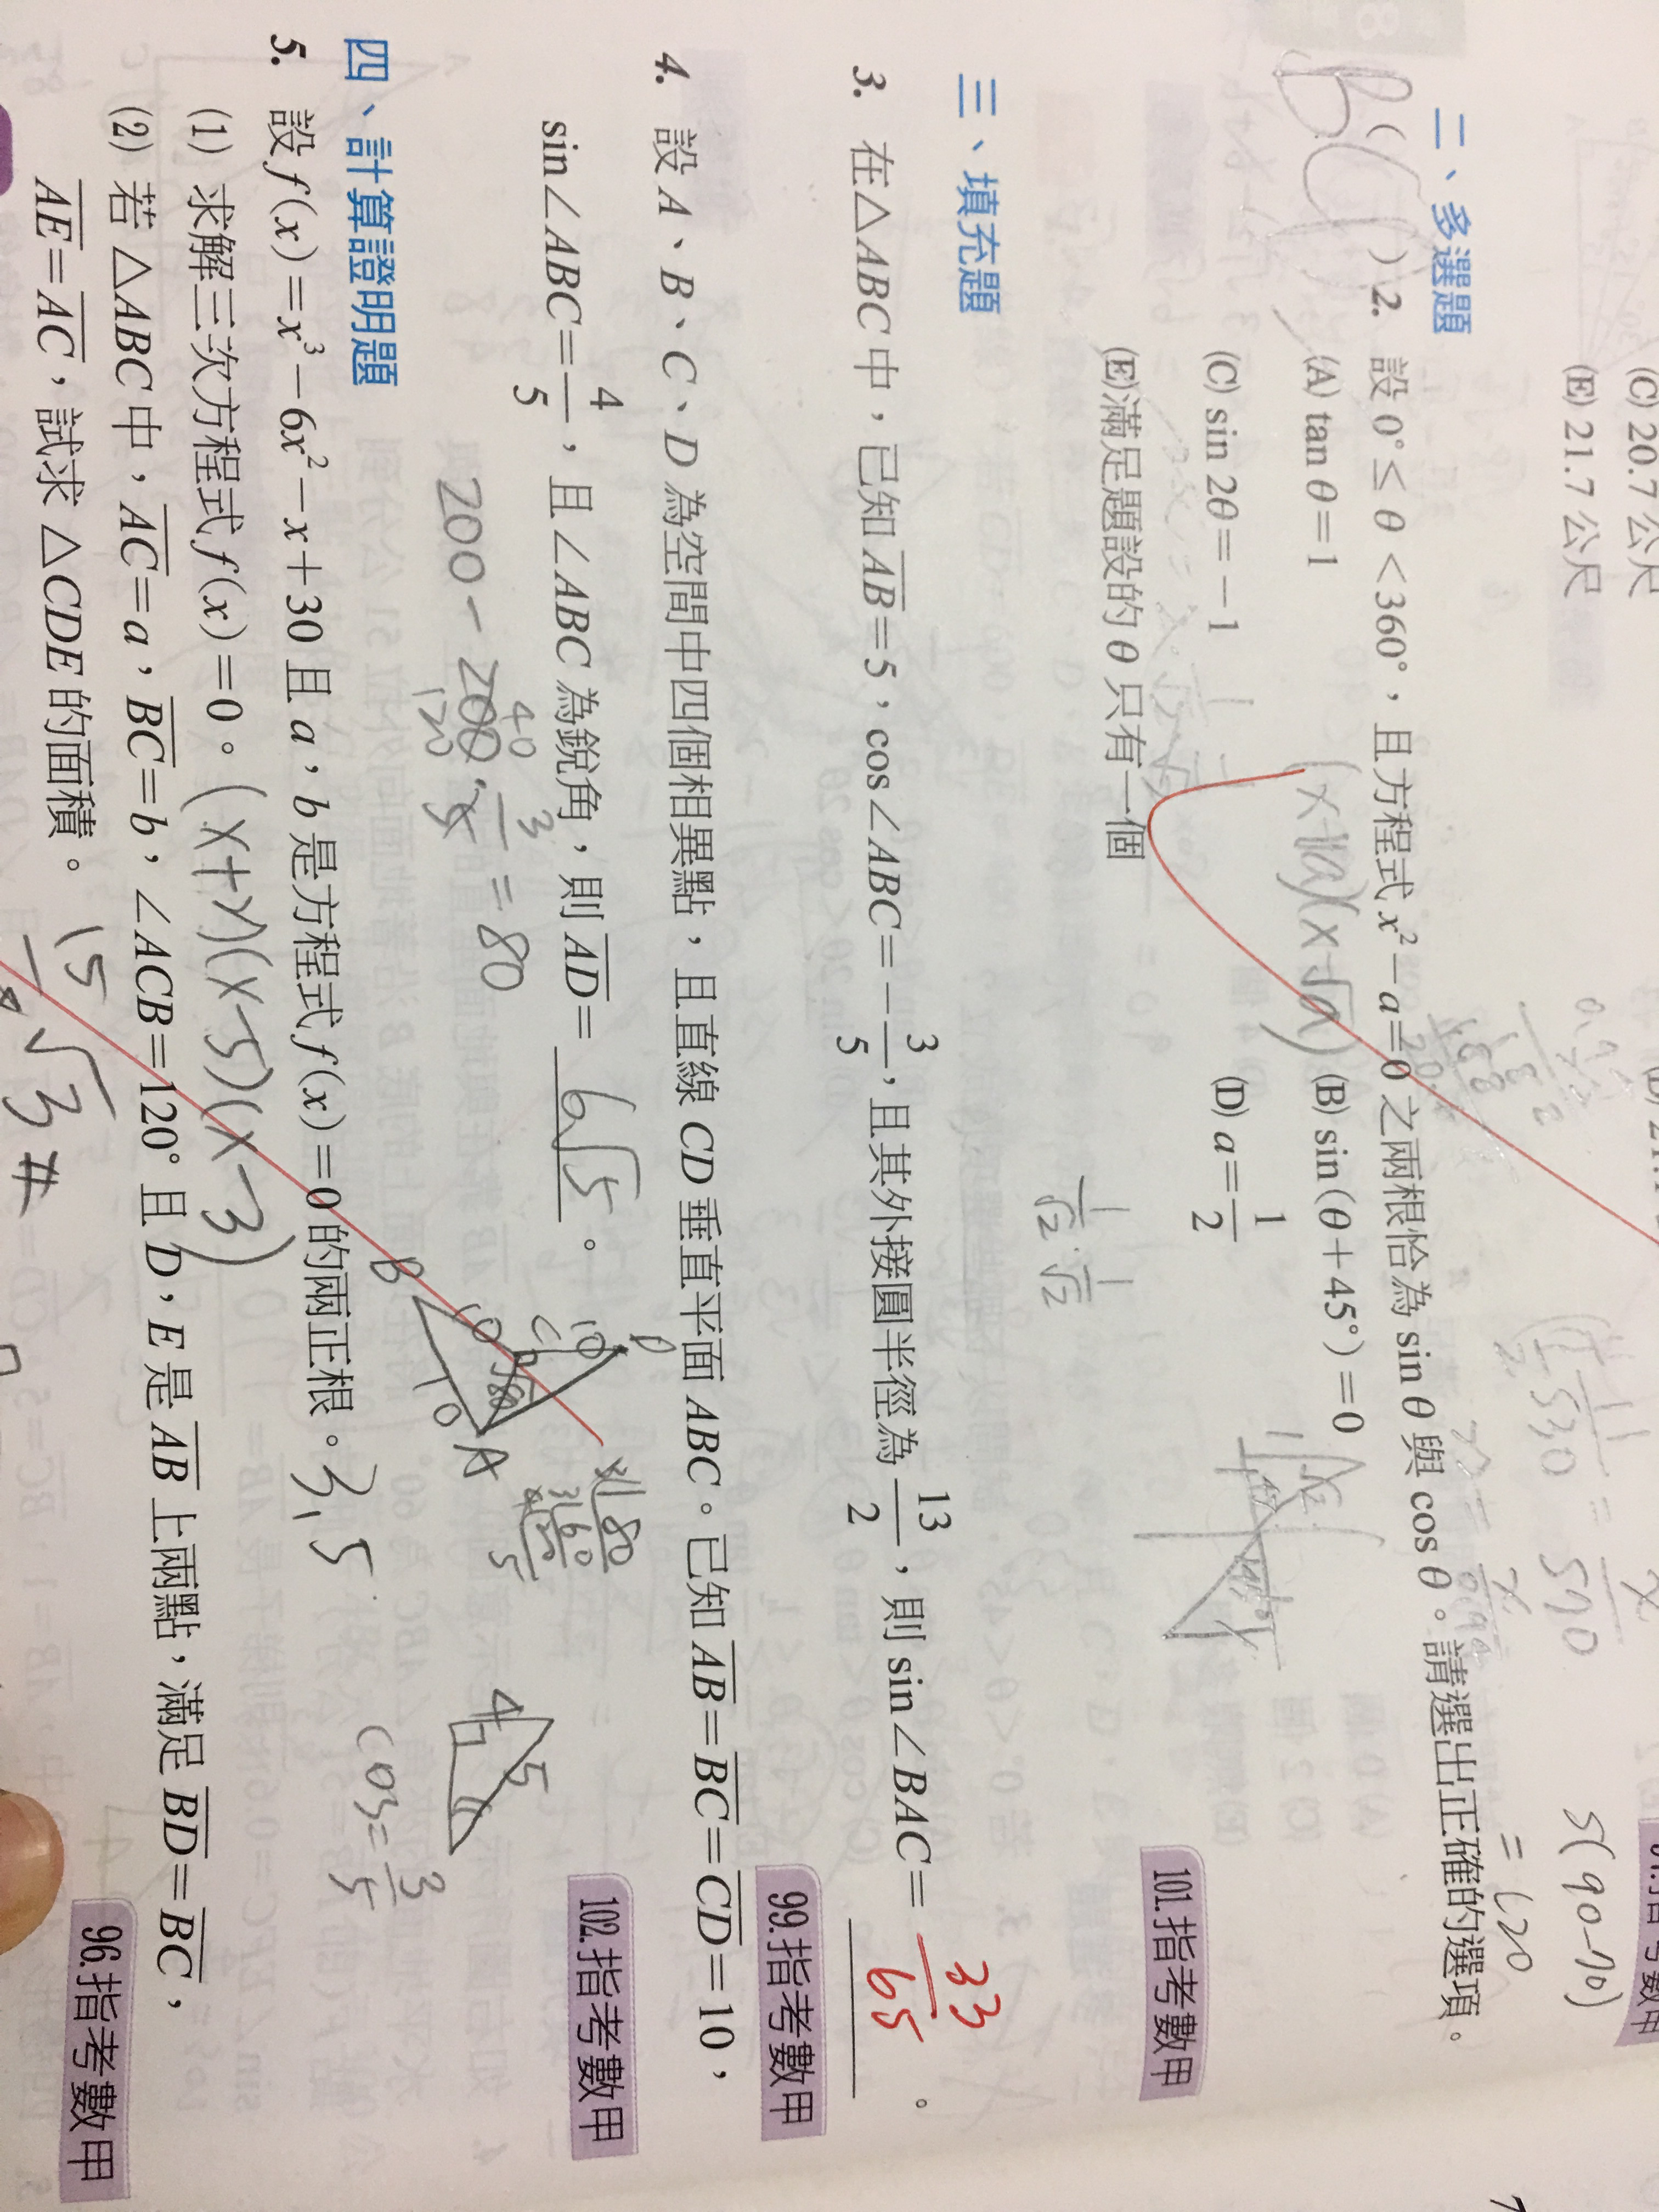 (C) 20.7 公尺
(E) 21.7 公尺
5(90-70)
= 120
二、多選題
B( ) 2. 設 0° ≤ θ < 360°，且方程式 x² − a = 0 之兩根恰為 sin θ 與 cos θ。請選出正確的選項。
(A) tan θ = 1 (B) sin (θ + 45°) = 0
(C) sin 2θ = −1 (D) a = 1/2
(E) 滿足題設的 θ 只有一個
101.指考數甲
1/√2 · 1/√2
三、填充題
3. 在 △ABC 中，已知 AB = 5，cos ∠ABC = − 3/5，且其外接圓半徑為 13/2，則 sin ∠BAC = 33/65 。
99.指考數甲
4. 設 A、B、C、D 為空間中四個相異點，且直線 CD 垂直平面 ABC。已知 AB = BC = CD = 10，
sin ∠ABC = 4/5，且 ∠ABC 為銳角，則 AD = 6√5 。
102.指考數甲
200 − 200 · 3/5 = 80
40
120
B 10 C 10 D
√80
10 A
4 5
cos = 3/5
四、計算證明題
5. 設 f(x) = x³ − 6x² − x + 30 且 a，b 是方程式 f(x) = 0 的兩正根。 3,5
(1) 求解三次方程式 f(x) = 0。 (x+2)(x-5)(x-3)
(2) 若 △ABC 中，AC = a，BC = b，∠ACB = 120° 且 D，E 是 AB 上兩點，滿足 BD = BC，
AE = AC，試求 △CDE 的面積。 15 √3 #
96.指考數甲